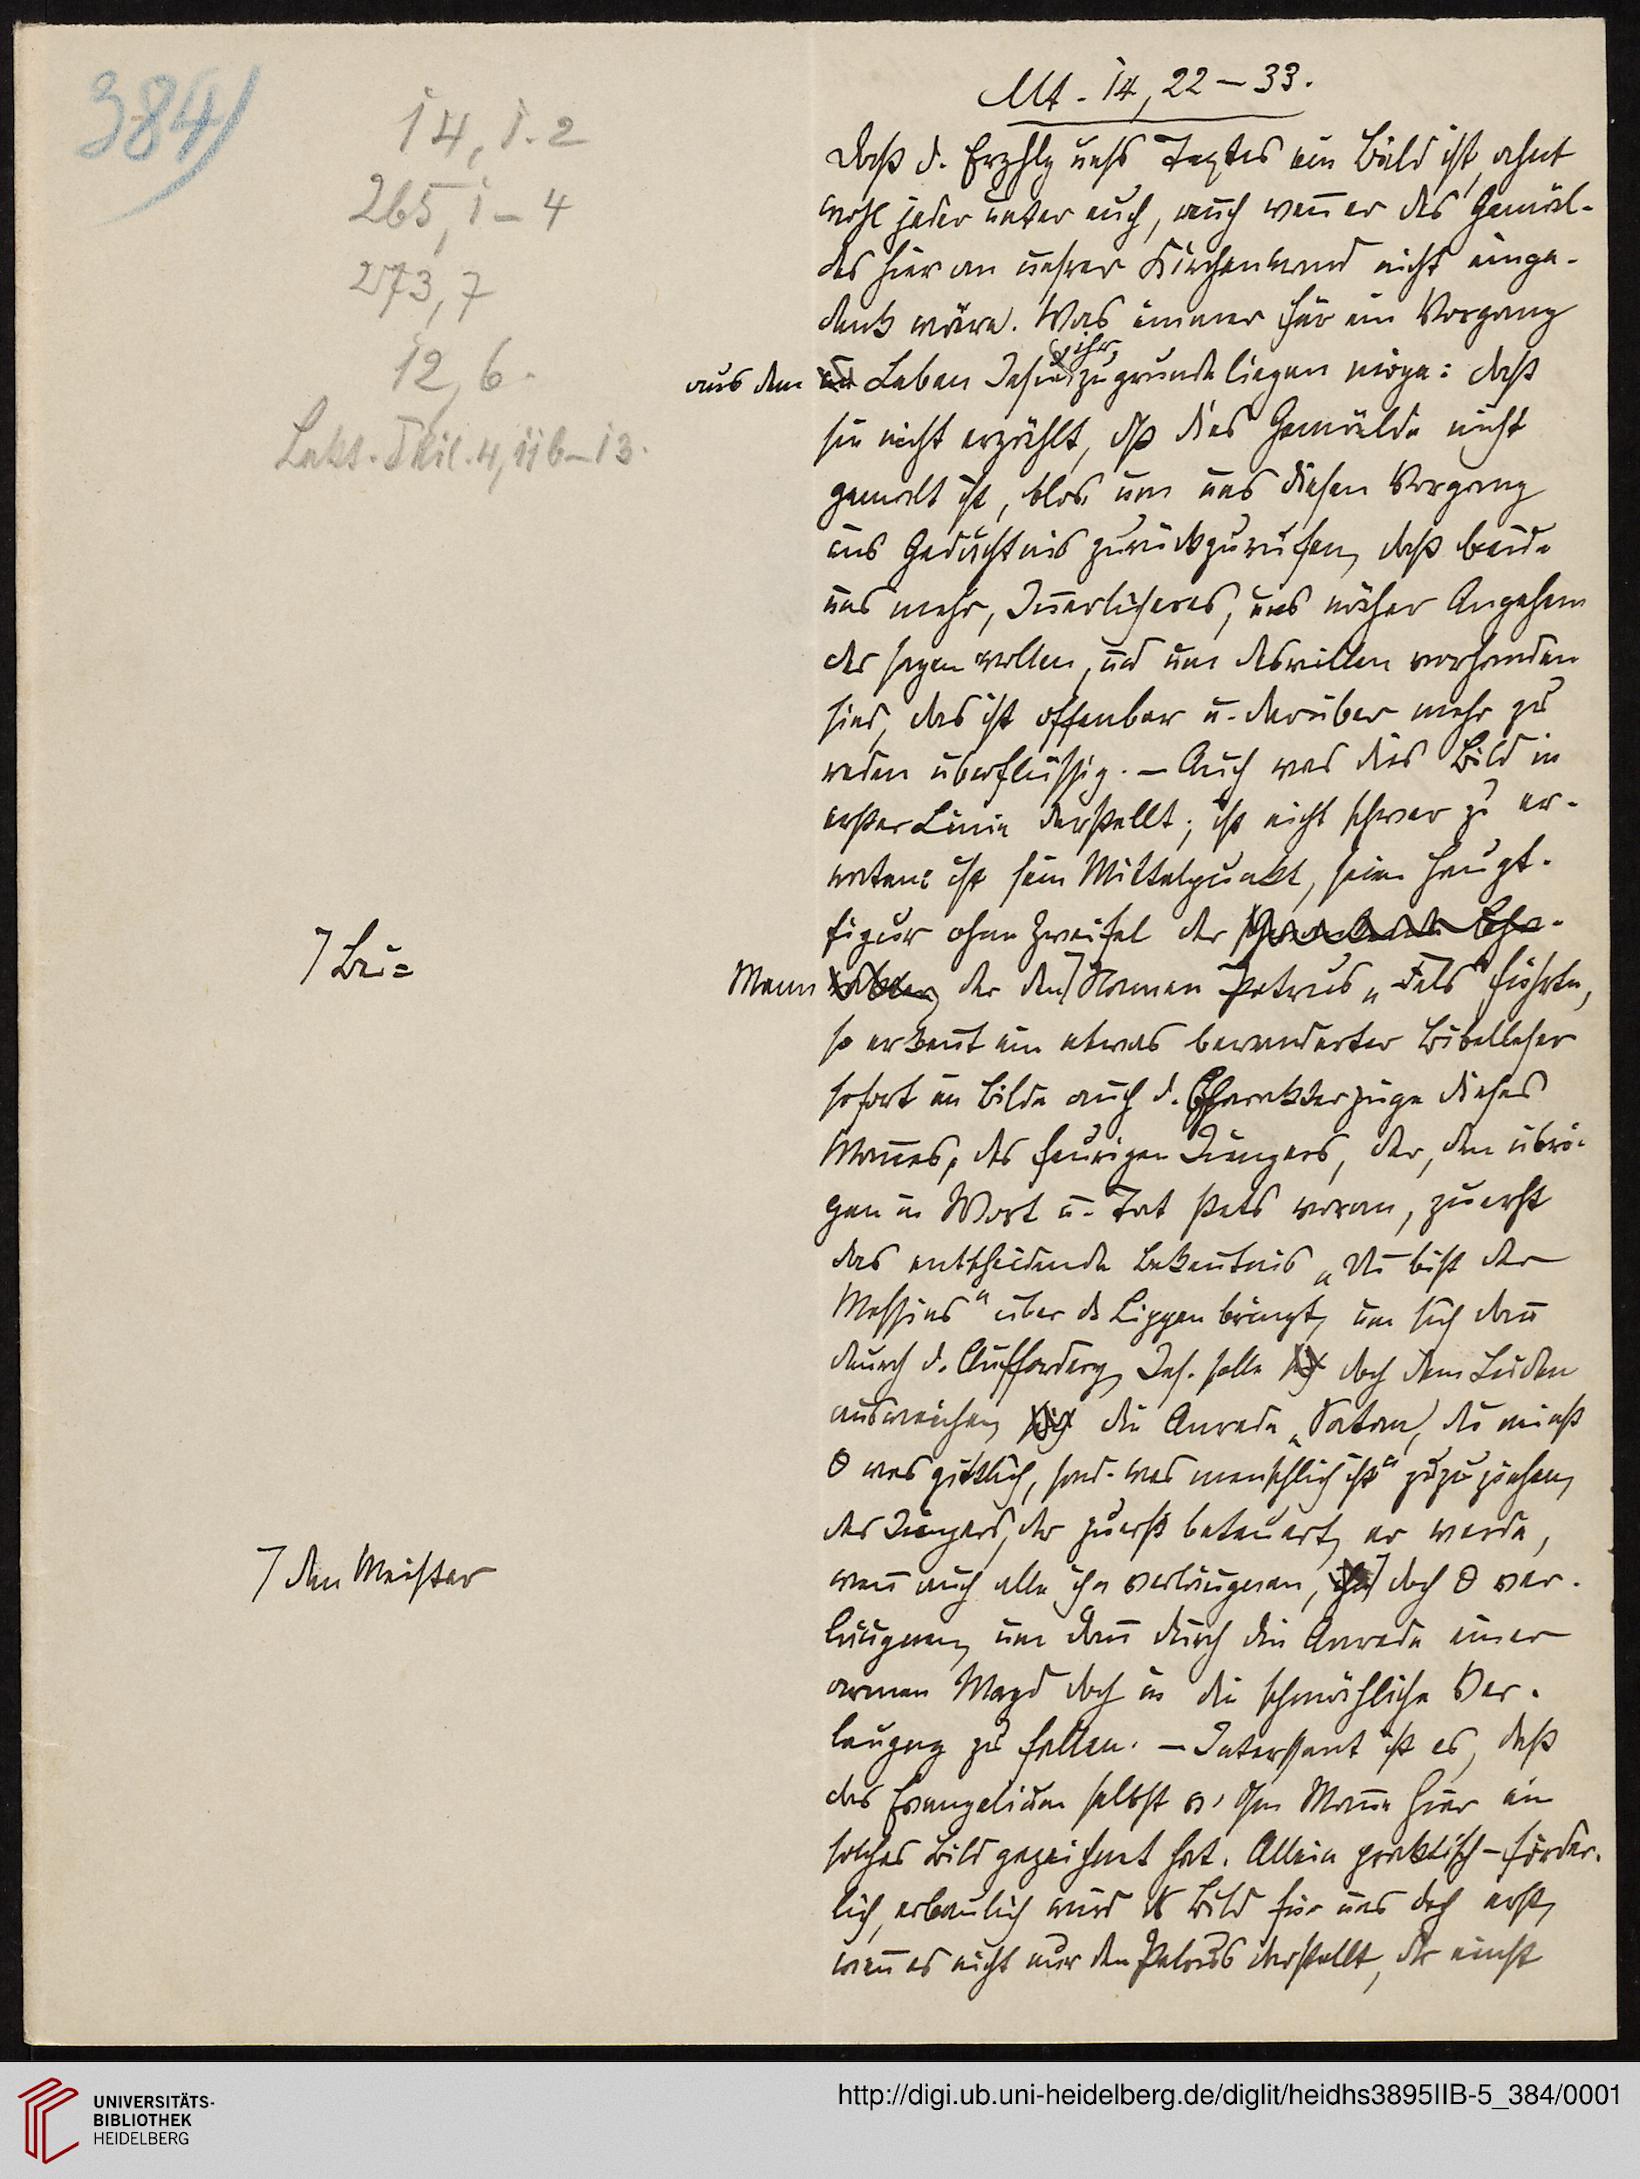 384)
14, 1.2
265, 1–4
273, 7
12, 6.
Lekt. Phil. 4, 11b–13.
Mt. 14, 22–33.
Daß d. Erzhlg unsrs Textes ein Bild ist, ahnt
wohl jeder unter euch, auch weñ er des Gemäl-
des hier an unsrer Kirchenwand nicht einge-
denk wäre. Was immer für ein Vorgang
aus dem Leben Jesu ihr zugrunde liegen möge: daß
sie nicht erzählt, dß dies Gemälde nicht
gemalt ist, blos um uns diesen Vorgang
ins Gedächtnis zurückzurufen, daß beide
uns mehr, Iñerlicheres, uns näher Angehen
des sagen wollen, und um deswillen vorhanden
sind, das ist offenbar u. darüber mehr zu
reden überflüssig. – Auch was dies Bild in
erster Linie darstellt, ist nicht schwer zu er-
raten: ist sein Mittelpunkt, seine Haupt-
figur ohne Zweifel der
Mann der den Namen Petrus „Fels“ führte,
⁊ Bei=
so erkeñt ein etwas bewanderter Bibelleser
sofort im Bilde auch d. Charakterzüge dieses
Mañes, des feurigen Jüngers, der, den übri-
gen in Wort u. Tat stets voran, zuerst
das entscheidende Bekeñtnis „Du bist der
Messias“ über d. Lippen bringt, um sich dañ
durch d. Aufforderg, Jes. solle doch dem Leiden
ausweichen, die Anrede „Satan, du meinst
θ was göttlich, sond. was menschlich ist“ zuzuziehen,
des Jüngers, der zuerst beteuert, er werde,
weñ auch alle ihn verleugnen, doch θ ver-
⁊ den Meister
leugnen, um dañ durch die Anrede einer
armen Magd doch in die schmähliche Ver-
leugng zu fallen. – Interssant ist es, daß
das Evangelium selbst v. dsm Mañe hier ein
solches Bild gezeichnet hat. Allein praktisch-förder-
lich, erbaulich wird ds Bild für uns doch erst,
weñ es nicht nur den Petrus darstellt, der einst
UNIVERSITÄTS-
BIBLIOTHEK
HEIDELBERG
http://digi.ub.uni-heidelberg.de/diglit/heidhs3895IIB-5_384/0001